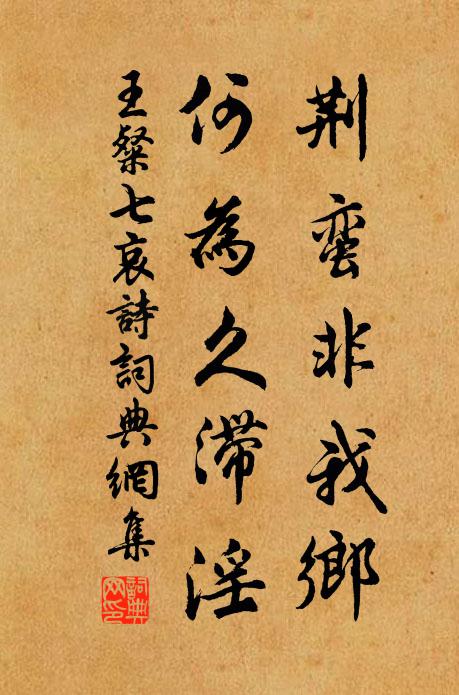 荆蛮非我鄉
何為久滯淫
王粲七哀詩詞典網集
詞典網印